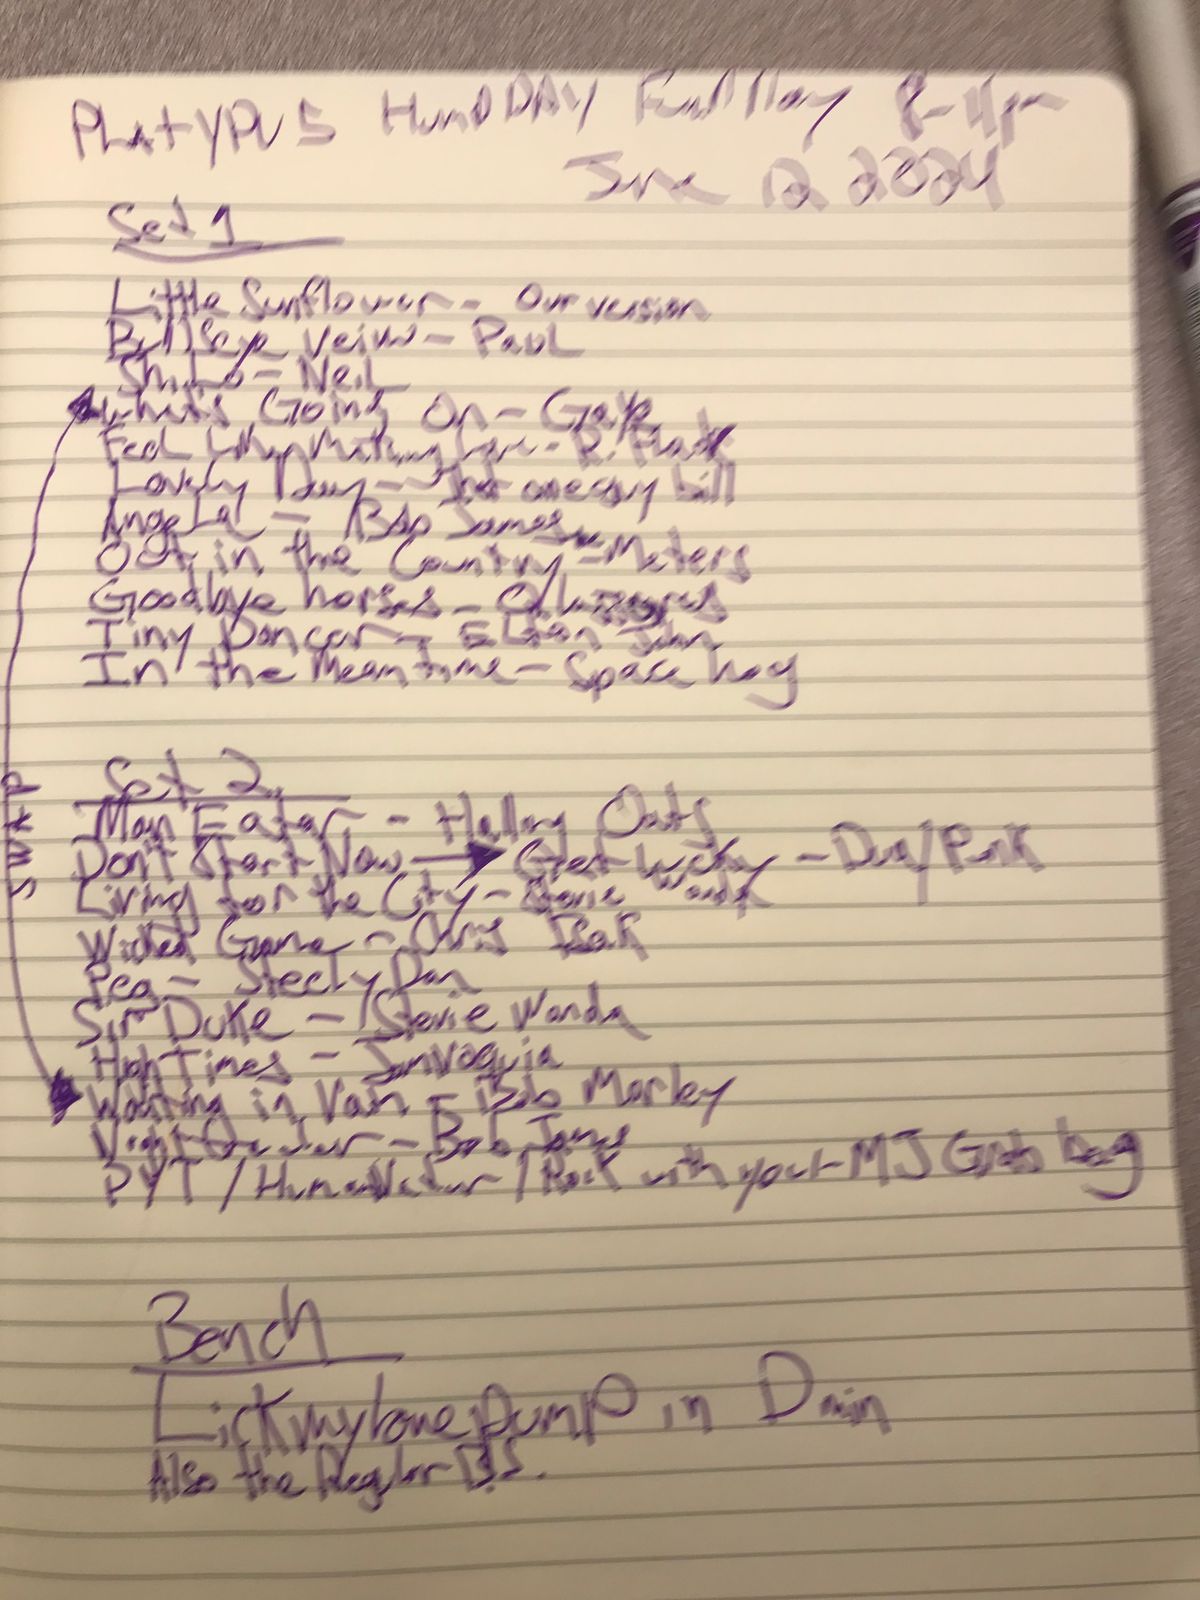 PLATYPUS HUMPDAY 8-11pm
June 12 2024
Set 1
Little Sunflower - Our version
Bullseye Veiw - Paul
Shilo - Neil
What's Going On - Gaye
Feel Making Love - R. Flack
Lovely Day - Just one say bill
Angela - Bob James
Out in the Country - Meters
Goodbye horses - Q
Tiny Dancer - Elton John
In the Meantime - Space hog
SWAP
Set 2
Man Eater - Hall Oats
Don't Start Now → Get Lucky - Dua/Punk
Living for the City - Stevie Wonda
Wicked Game - Chris Isak
Peg - Steely Dan
Sir Duke - Stevie Wonda
High Times - Jamiroquia
Waiting in Vain - Bob Marley
Nightcrawler - Bob James
PYT / Human Natur / Rock with you - MJ Grab bag
Bench
Lick my love pump in D min
Also the Reglar B.S.